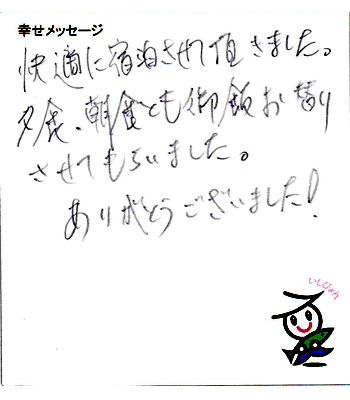 幸せメッセージ
快適に宿泊させて頂きました。
夕食、朝食とも御飯お替り
させてもらいました。
ありがとうございました!
いしじゃん